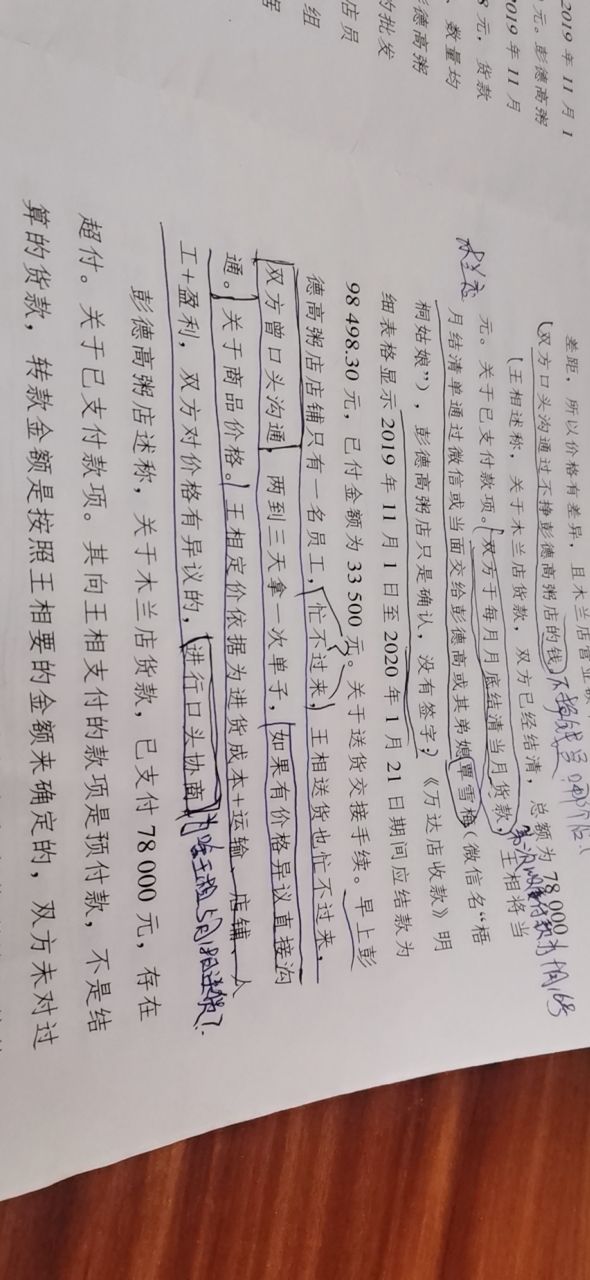 2019 年 11 月 1
元。彭德高粥
2019 年 11 月
8 元，货款
、数量均
彭德高粥
的批发
店员
组
差距，所以价格有差异，且木兰店营业额
双方口头沟通过不挣彭德高粥店的钱
王相述称，关于木兰店货款，双方已经结清，总额为 78 000
元。关于已支付款项。双方于每月月底结清当月货款，王相将当
月结清单通过微信或当面交给彭德高或其弟媳覃雪梅（微信名“梧
桐姑娘”），彭德高粥店只是确认，没有签字；《万达店收款》明
细表格显示 2019 年 11 月 1 日至 2020 年 1 月 21 日期间应结款为
98 498.30 元，已付金额为 33 500 元。关于送货交接手续。早上彭
德高粥店店铺只有一名员工，忙不过来，王相送货也忙不过来，
双方曾口头沟通，两到三天拿一次单子，如果有价格异议直接沟
通。关于商品价格。王相定价依据为进货成本+运输、店铺、人
工+盈利，双方对价格有异议的，进行口头协商
彭德高粥店述称，关于木兰店货款，已支付 78 000 元，存在
超付。关于已支付款项。其向王相支付的款项是预付款，不是结
算的货款，转款金额是按照王相要的金额来确定的，双方未对过